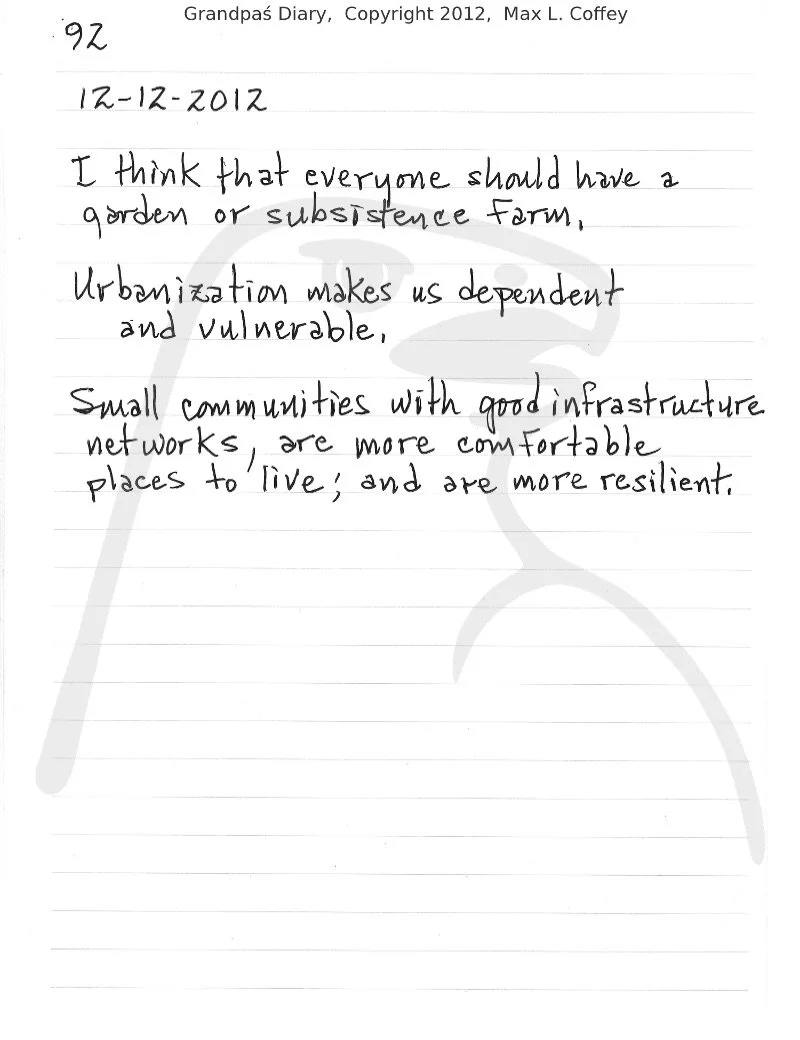 Grandpaś Diary, Copyright 2012, Max L. Coffey
92
12-12-2012
I think that everyone should have a
garden or subsistence farm.
Urbanization makes us dependent
and vulnerable.
Small communities with good infrastructure
networks, are more comfortable
places to live; and are more resilient.